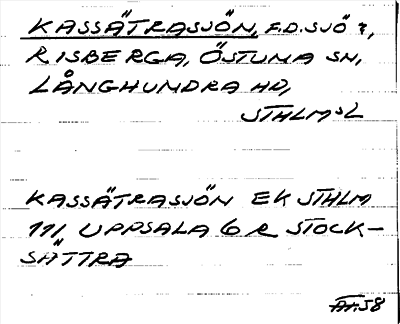 KASSÄTRASJÖN, F.D. SJÖ?,
RISBERGA, ÖSTUNA SN,
LÅNGHUNDRA HD,
STHLMSL
KASSÄTRASJÖN EK STHLM
111 UPPSALA 6 R STOCK-
SÄTTRA